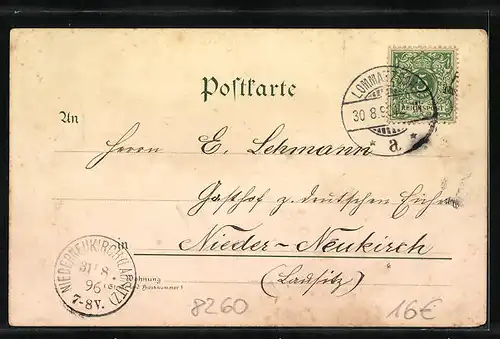 Postkarte
REICHSPOST
LOMMATZSCH
30 8 9
* a. *
An
Herrn E. Lehmann
Gasthof z. deutschen Eiche
in Nieder-Neukirch
(Lausitz)
Wohnung
NIEDERNEUKIRCH (LAUSITZ)
31 8
96
7-8V.
8260
16€